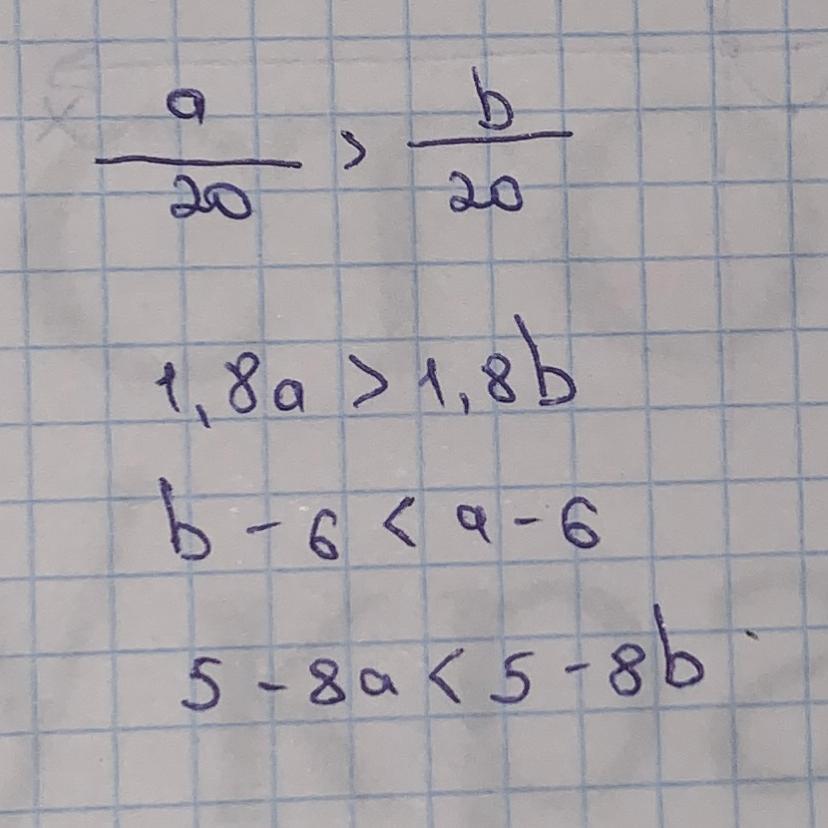 a/20 > b/20
1,8a > 1,8b
b - 6 < a - 6
5 - 8a < 5 - 8b